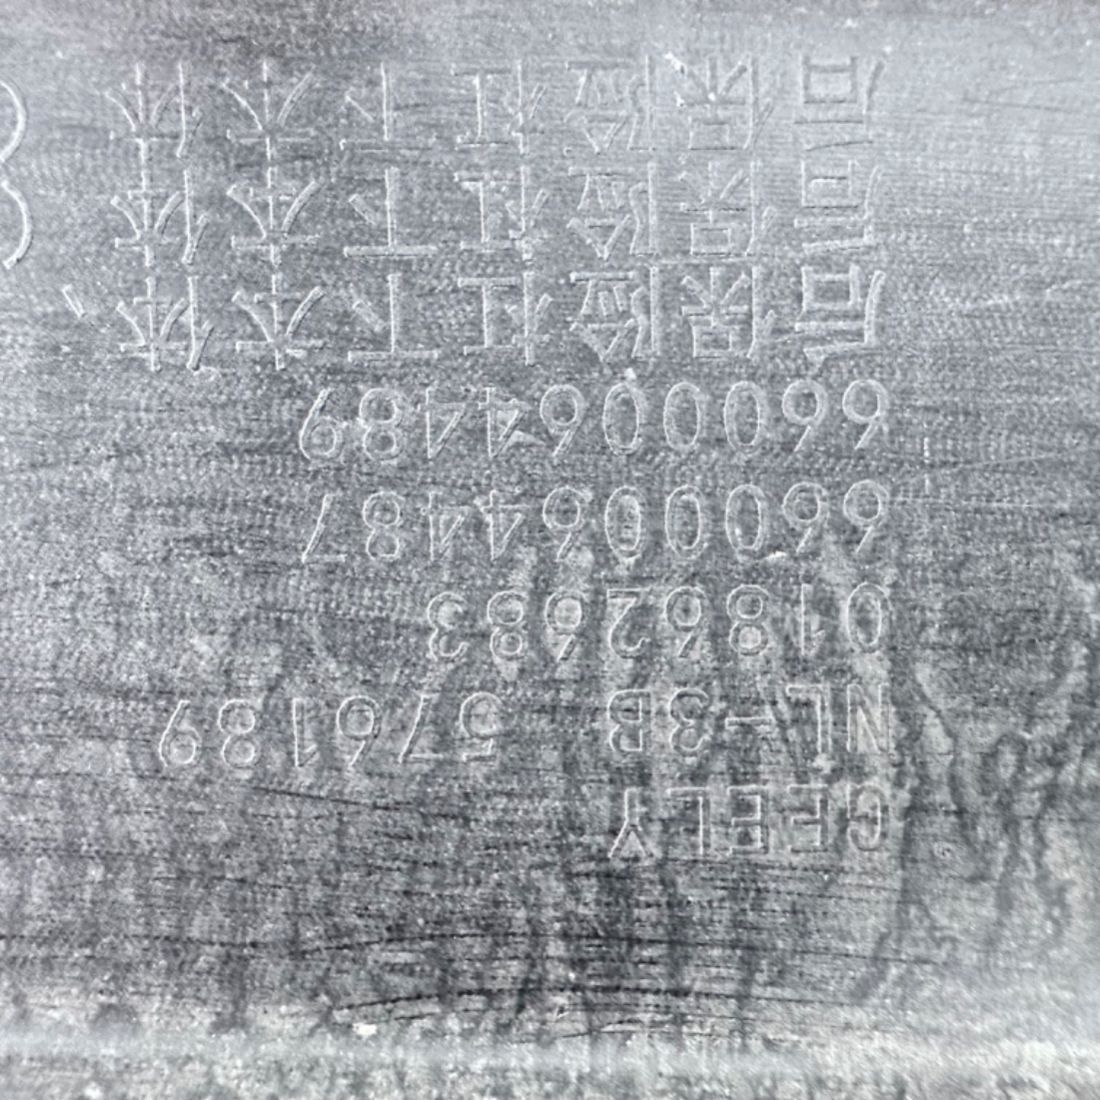 GEELY
NL-3B 576189
01862683
6600064487
6600064489
后保险杠下本体
后保险杠下本体
后保险杠下本体